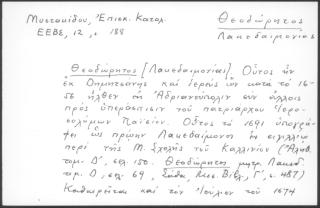 Μυστακίδου, Ἐπισκ. Κατάλ.
ΕΕΒΣ, 12, σ 188
Θεοδώρητος
Λακεδαιμονίας
Θεοδώρητος [Λακεδαιμονίας] Οὗτος ἦν
ἐκ Δημητσάνης καὶ ἱερεὺς ὢν κατὰ τὸ 16-
56 ἦλθεν ἐν Ἀδριανουπόλει σὺν ἄλλοις
πρὸς ὑπεράσπισιν τοῦ πατριάρχου Ἱερο-
σολύμων Παϊσίου. Οὗτος τὸ 1691 ὑπογρά-
φει ὡς πρώην Λακεδαίμονος ἐν
περὶ τῆς Μ. Σχολῆς τοῦ Καλλινίου (Ἀλήθ.
τομ. Δ΄, σελ. 150. Θεοδώρητος μητρ. Λακεδ.
τομ. Δ, σελ. 69, Σάθα, Μεσ. Βιβλ. Γ΄, σ. 487)
Καθαιρεῖται κατὰ τὸν Ἰούλιον τοῦ 1674